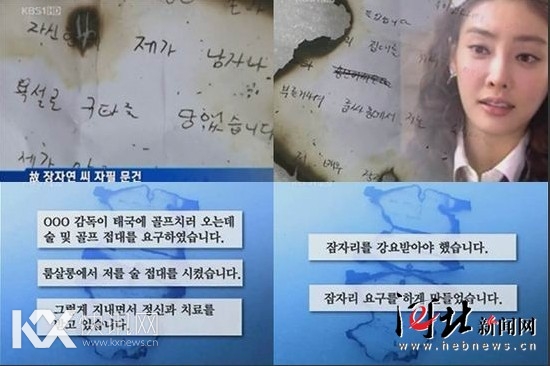 KBS1 HD
자신
제가 남자나
욕설로 구타를
당했습니다
제가
故 장자연 씨 자필 문건
접대를
OOO 감독이 태국에 골프치러 오는데
술 및 골프 접대를 요구하였습니다.
룸살롱에서 저를 술 접대를 시켰습니다.
그렇게 지내면서 정신과 치료를
받고 있습니다.
잠자리를 강요받아야 했습니다.
잠자리 요구를 하게 만들었습니다.
KX 网
www.kxnews.cn
河北新闻网
www.hebnews.cn